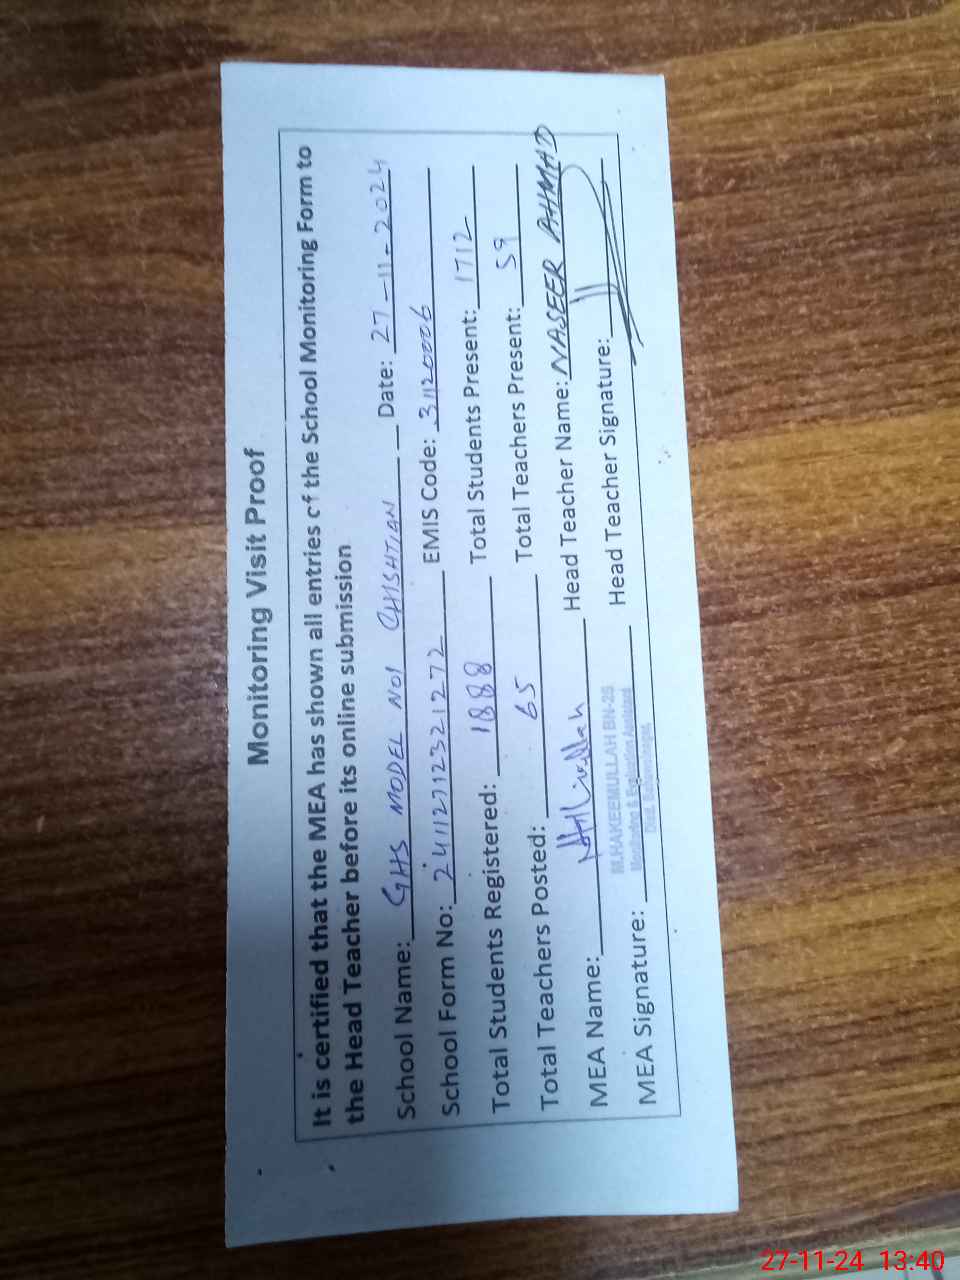 Monitoring Visit Proof
It is certified that the MEA has shown all entries of the School Monitoring Form to
the Head Teacher before its online submission
School Name: GHS MODEL NO1 CHISHTIAN Date: 27-11-2024
School Form No: 2411271232 1272 EMIS Code: 31120006
Total Students Registered: 1888 Total Students Present: 1712
Total Teachers Posted: 65 Total Teachers Present: 59
MEA Name: Head Teacher Name: NASEER AHMAD
M.HAKEEMULLAH BN-25
Monitoring & Evaluation Assistant
Distt. Bahawalnagar
MEA Signature: Head Teacher Signature:
27-11-24 13:40